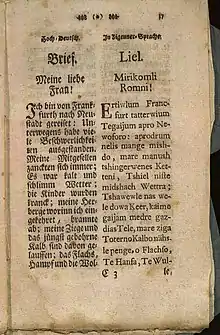 (o)
37
Hoch-Deutsch.
Brief.
Meine liebe
Frau!
Ich bin von Franck-
furth nach Neu-
stadt gereiset; Un-
terwegens habe vie-
le Beschwerlichkei-
ten ausgestanden
Meine Mitgesellen
zancketen sich immer;
Es war kalt und
schlimm Wetter;
die Kinder wurden
kranck; meine Her-
berge worinn ich ein-
gekehret, brannte
ab; meine Ziege und
das jüngst gebohrne
Kalb sind davon ge-
lauffen; das Flachs,
Hampf und die Wol-
In Zigeuner-Sprache.
Liel.
Mirikomli
Romni!
Ertiwium Franc-
furt tatterwium
Tegaijum apro Ne-
woforo: aprodrum
nelis mange mish-
do, mare manush
tshingerwenes Ket-
teni, Tshiel niste
midshach Wettra;
Tshawewle nas we-
le dowa Keer, kaime
gaijam medre gaz-
dias Tele, mare ziga
Toterno Kalbo nähs-
le penge, o Flachso,
o Hanfa, Te Wul-
C 3 le,